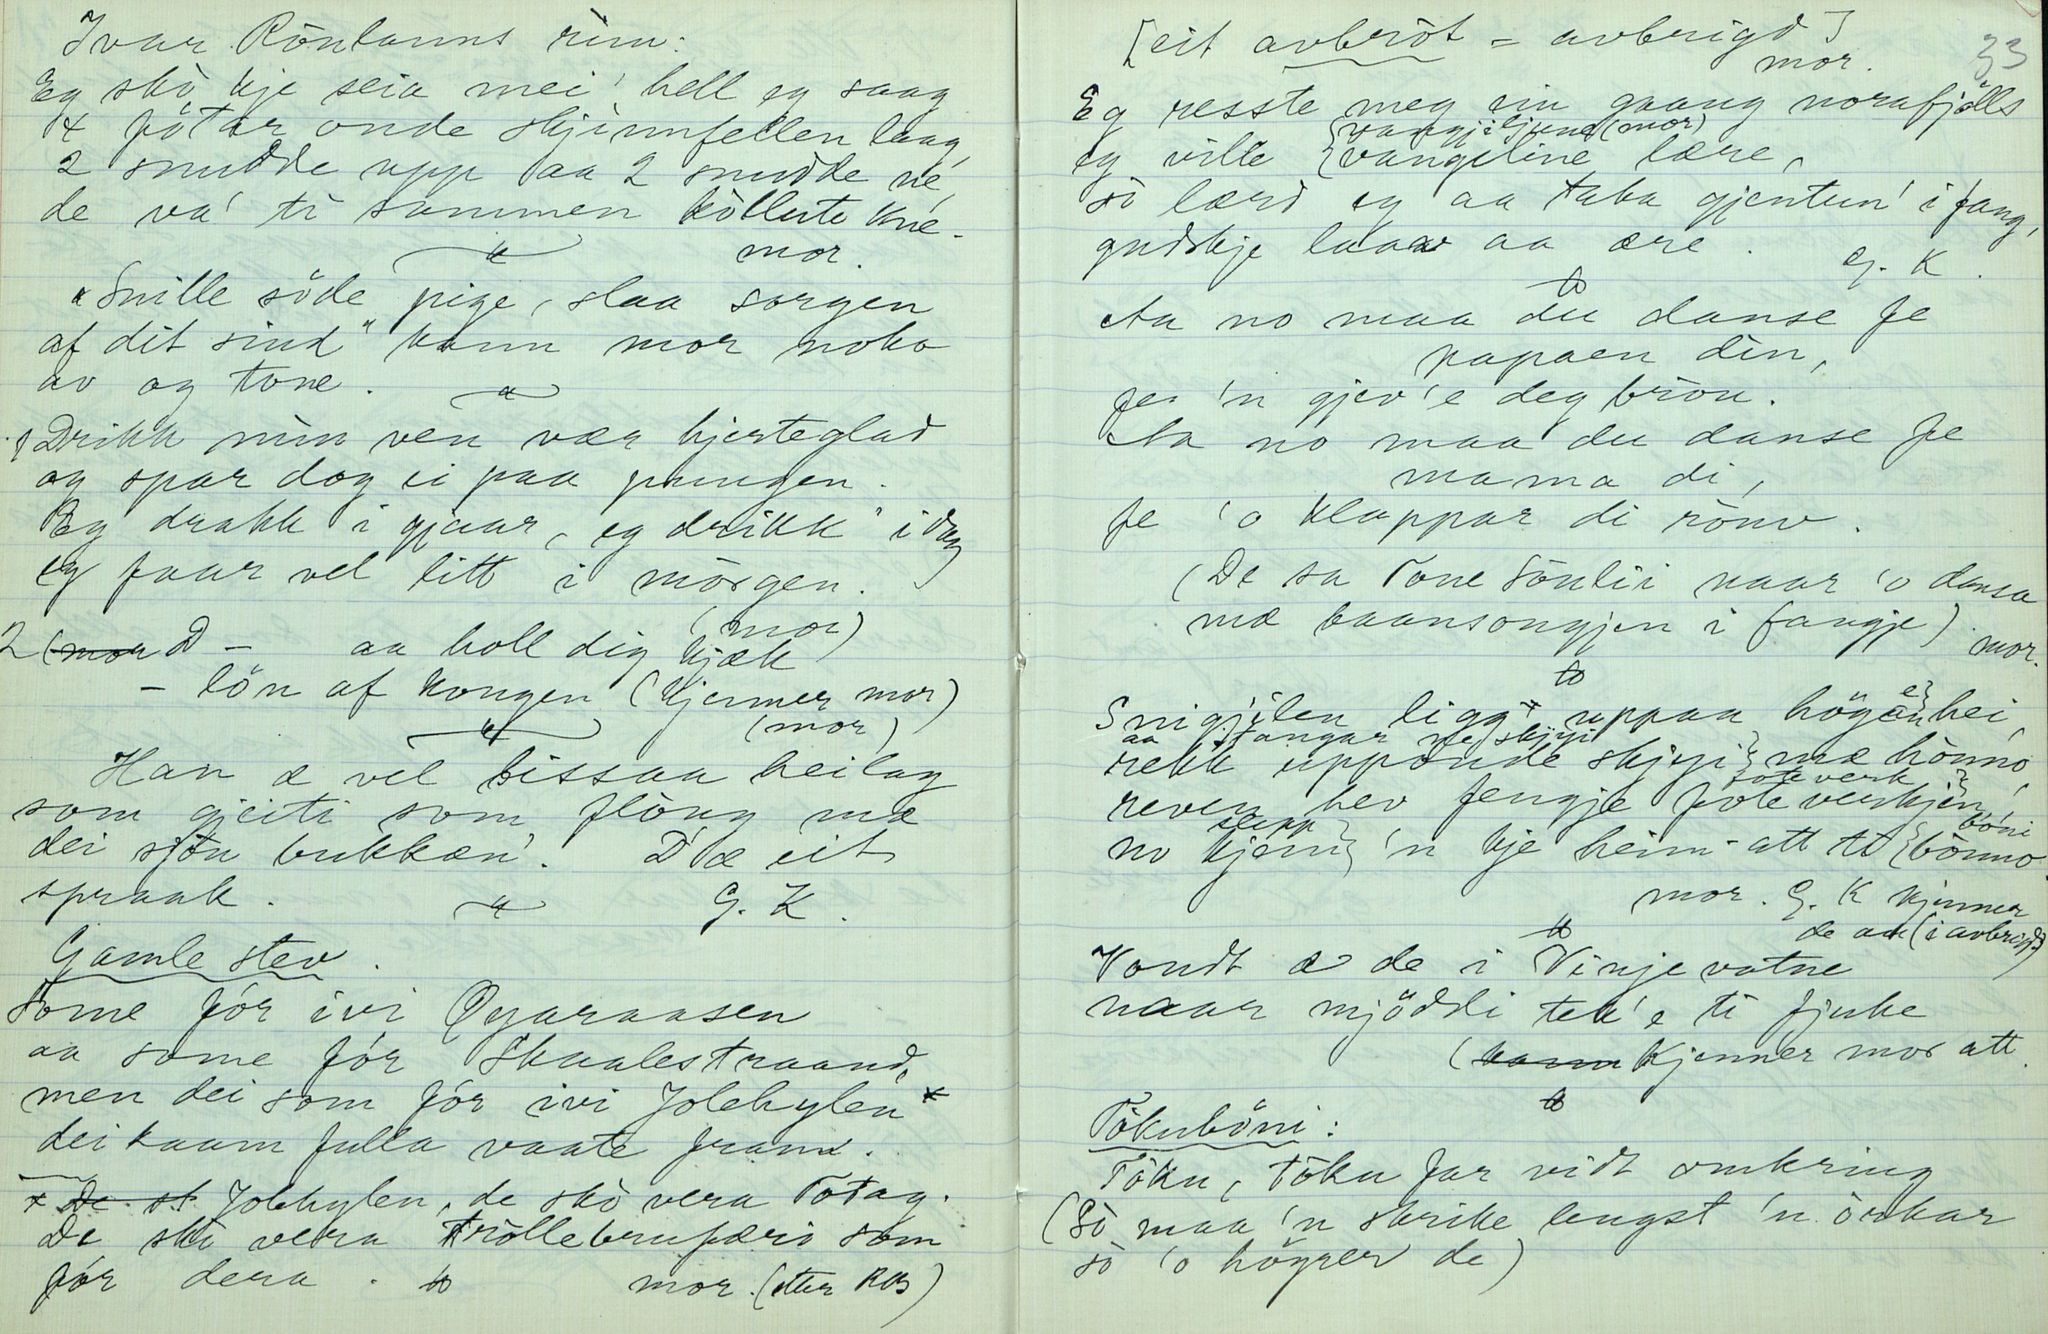 Ivar Röntanns rim:
Eg skò kje seia mei' hell eg saag
4 fötar onde skjinnfellen laag,
2 snudde upp aa 2 snudde né,
de va' ti sammen kòllute kne.
mor.
"Snille söde pige, slaa sorgen
af dit sind" kann mor noko
av og tone.
Drikk min ven vær hjerteglad
og spar dog ei paa pungen.
Eg drakk i gjaar, eg drikk i dag
eg faar vel litt i mòrgen.
(mor)
2 D – aa holl dig kjæk
– lön af kongen (kjenner mor)
(mor)
Han æ vel bissaa heilag
som gjeiti som flòug mæ
dei sjòu bukkæn'. D'æ eit
spraak. G. K.
Gamle stev.
Some fór ivi Öyaraasen
aa some fór Skaalestraand,
men dei som fór ivi Jolehylen *
dei kaam fulla vaate fram.
* De st. Jolehylen, de skò vera Tótag.
De skò vera tròllebrufæri som
fór dera. mor. (etter RB)
33
[eit avbröt = avbrigd]
mor.
Eg resste meg ein gaang norafjölls
vangjiljune (mor)
eg ville vangeline lære,
sò lærd eg aa taka gjentun' i fang,
gudskje laav aa ære.
G. K.
Aa no maa du danse fe
papaen din,
fe' 'n gjev 'e deg bròu.
Aa no maa du danse fe
mama di,
fe 'o klappar di ròuv.
(De sa Tone Sönlii naar 'o dansa
mæ baansongjen i fangje)
mor.
Snigjilen ligg uppaa högan hei,
aa fangar ne skjegi
rekk upponde skjegi mæ hònno,
foteverk
reven hev fengje foteverkjen,
slepp bóni
no kjem 'n kje heim-att ti bònno.
mor. G. K kjenner
de au (i avbrigd)
Vondt æ de i Vinjevatne
naar mjöddi tek 'e ti fjuke
(kann kjenner mor att.
Tókuböni:
Tóku, tóku far vidt omkring
(Sò maa 'n skrike lengst 'n òrkar
sò 'o höyrer de)